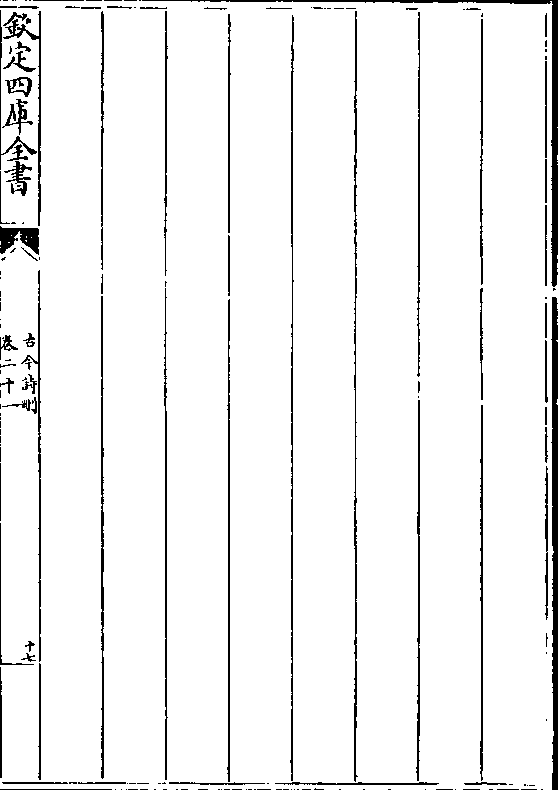 欽定四庫全書
古今詩刪
卷二十一
十七